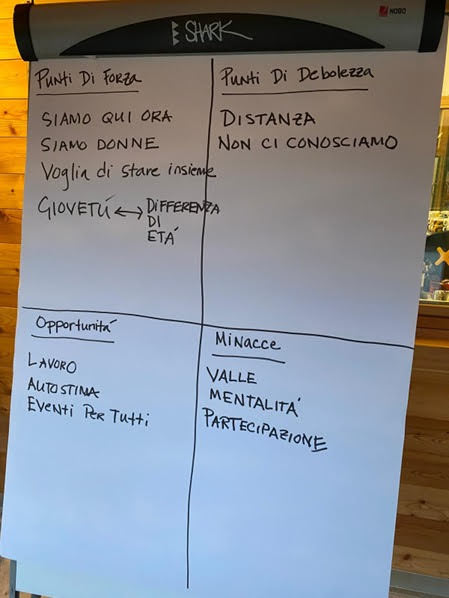 NOBO
SHARK
Punti Di Forza
SIAMO QUI ORA
SIAMO DONNE
Voglia di stare insieme
GIOVETÚ ↔ DIFFERENZA
DI
ETÁ
Punti Di Debolezza
DISTANZA
NON CI CONOSCIAMO
Opportunitá
LAVORO
AUTOSTIMA
EVENTI PER TUTTI
Minacce
VALLE
MENTALITÁ
PARTECIPAZIONE